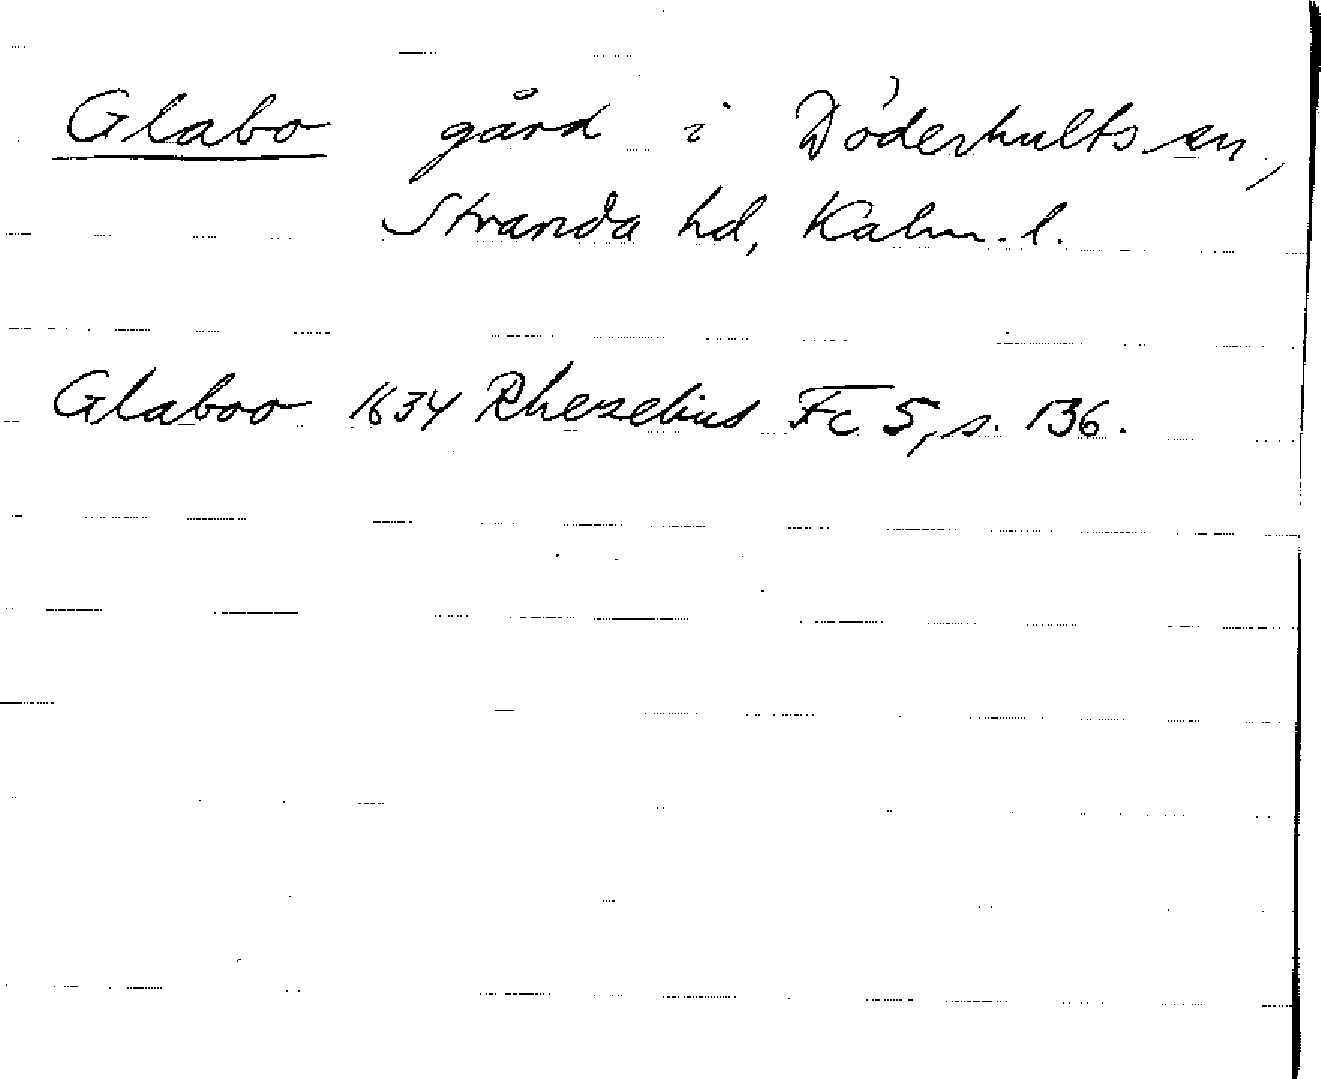 Glabo gård i Döderhults sn,
Stranda hd, Kalm. l.
Glaboo 1634 Rhezelius Fc 5, s. 136.